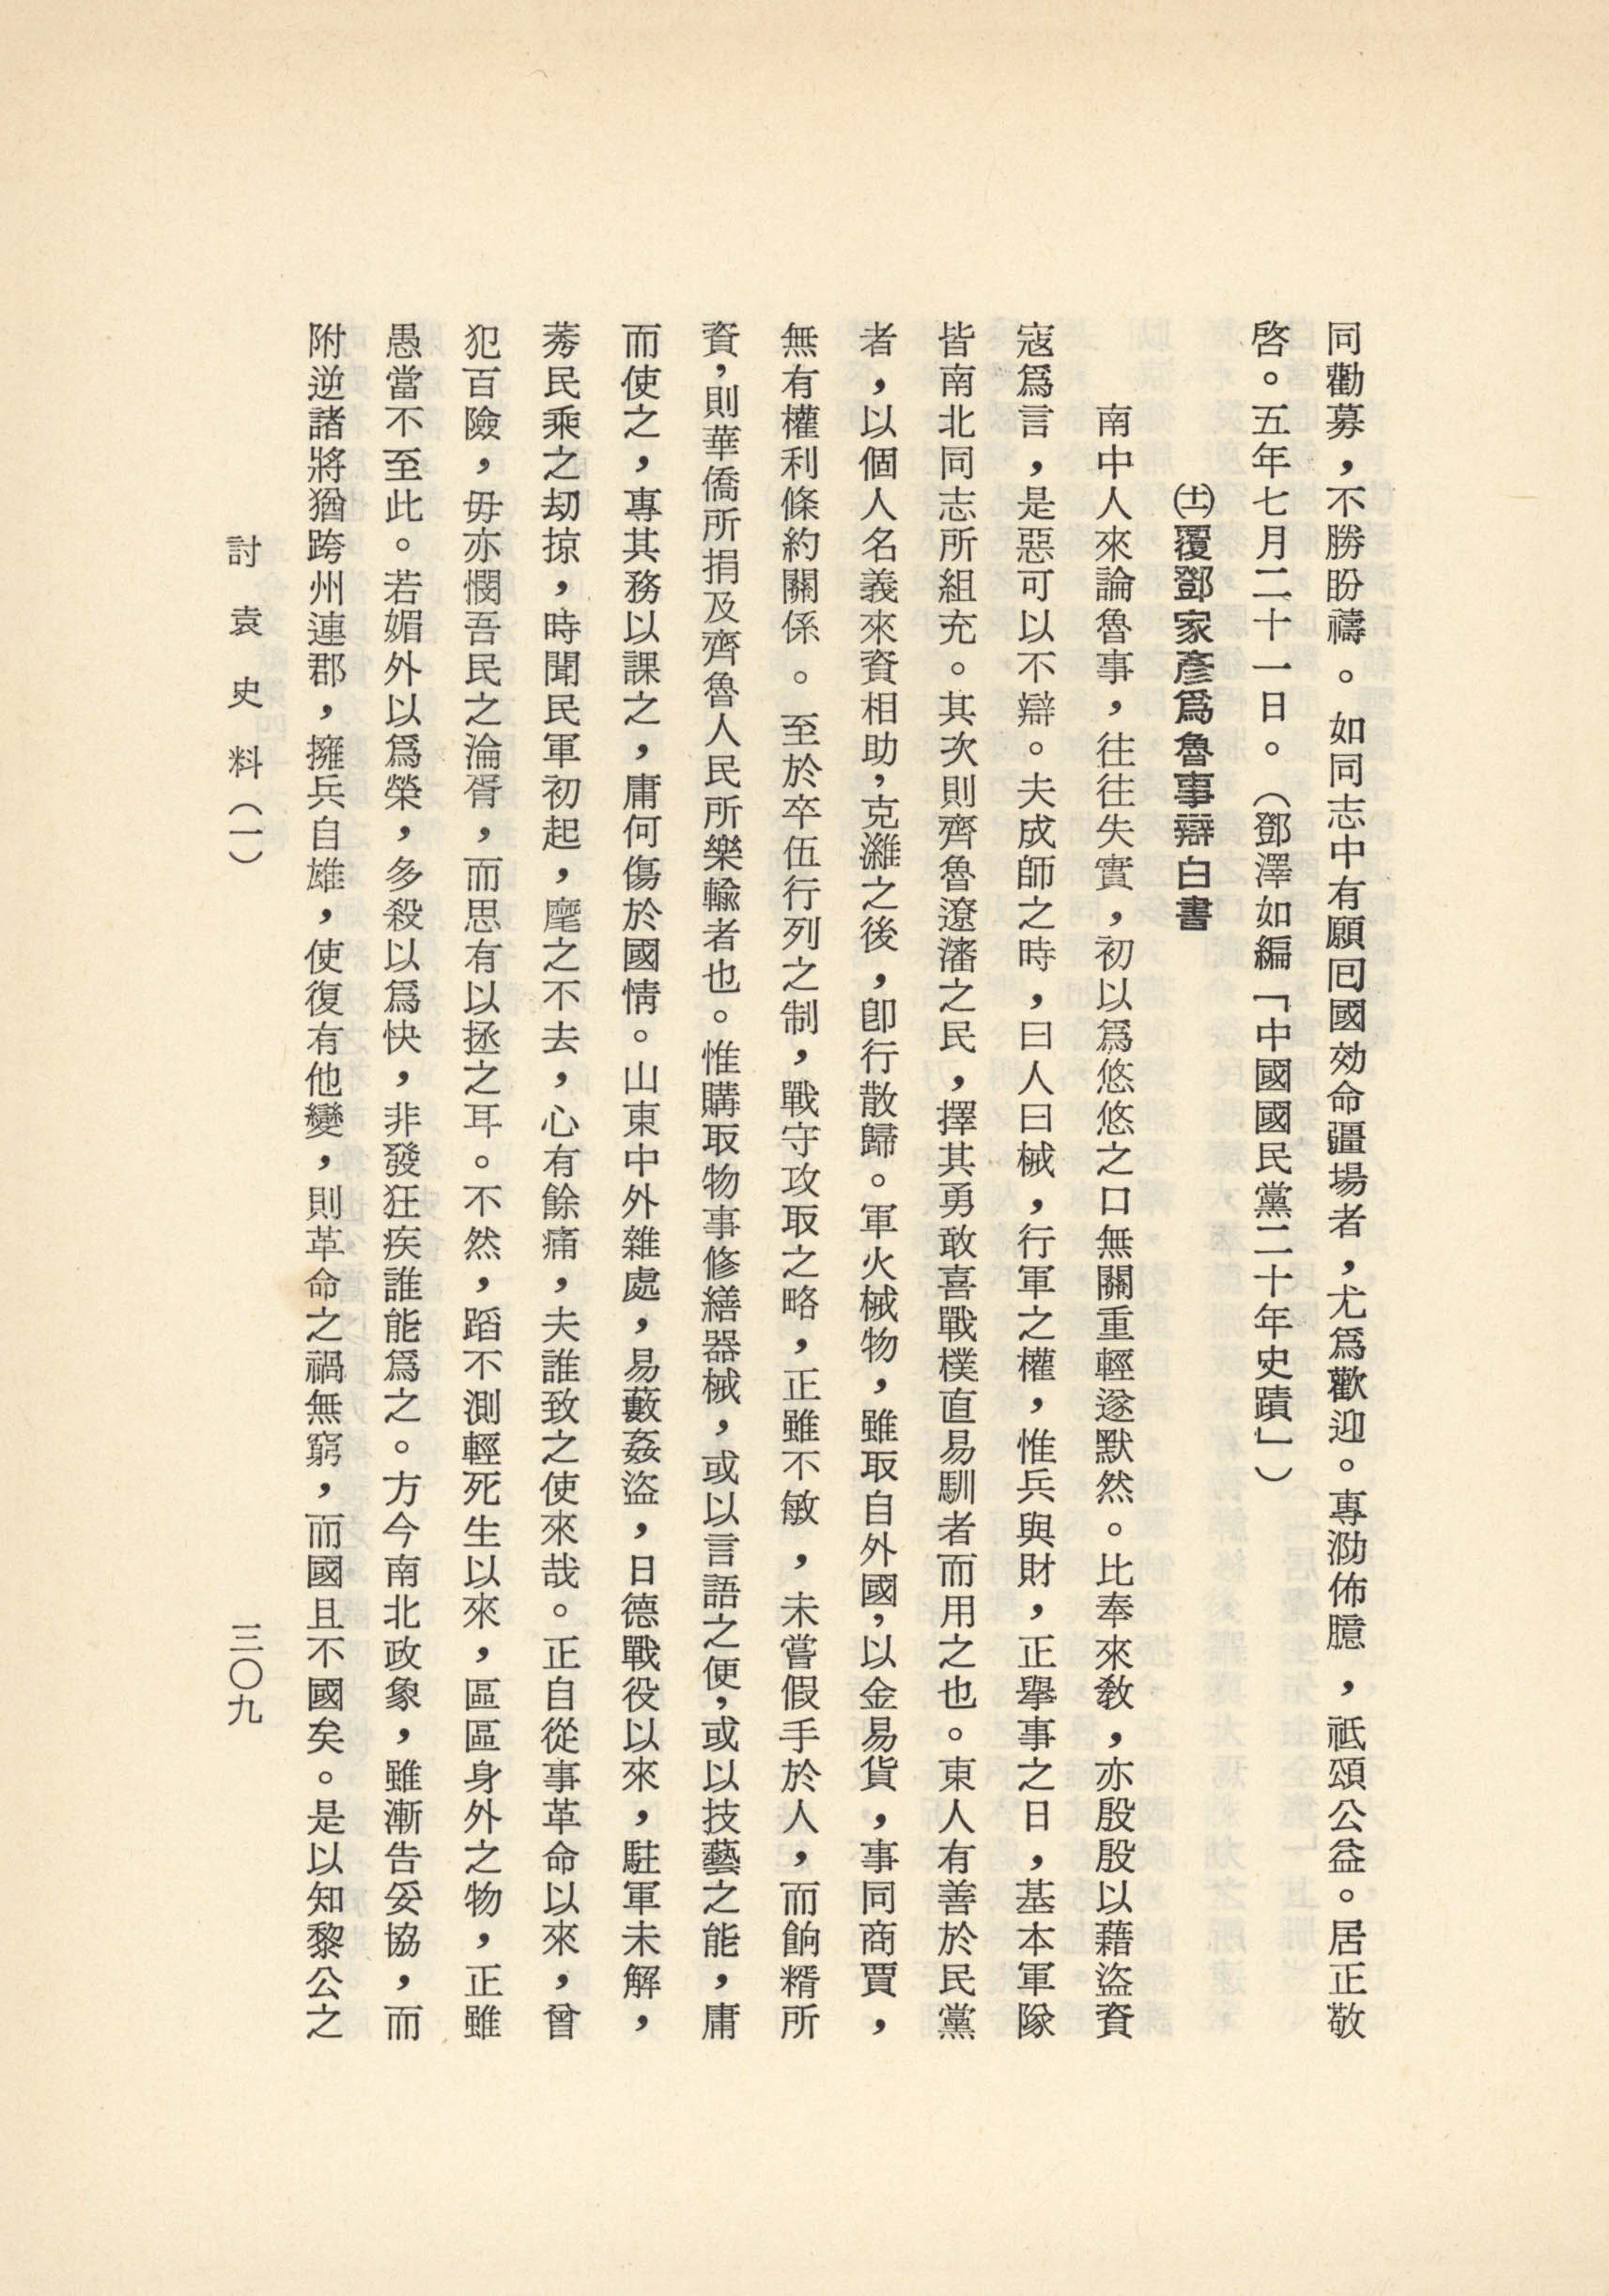 同勸募，不勝盼禱。如同志中有願囘國効命疆場者，尤爲歡迎。專泐佈臆，祗頌公益。居正敬
啓。五年七月二十一日。（鄧澤如編「中國國民黨二十年史蹟」）
㈩覆鄧家彥爲魯事辯白書
南中人來論魯事，往往失實，初以爲悠悠之口無關重輕遂默然。比奉來敎，亦殷殷以藉盜資
寇爲言，是惡可以不辯。夫成師之時，曰人曰械，行軍之權，惟兵與財，正擧事之日，基本軍隊
皆南北同志所組充。其次則齊魯遼瀋之民，擇其勇敢喜戰樸直易馴者而用之也。東人有善於民黨
者，以個人名義來資相助，克濰之後，卽行散歸。軍火械物，雖取自外國，以金易貨，事同商賈，
無有權利條約關係。至於卒伍行列之制，戰守攻取之略，正雖不敏，未嘗假手於人，而餉糈所
資，則華僑所捐及齊魯人民所樂輸者也。惟購取物事修繕器械，或以言語之便，或以技藝之能，庸
而使之，專其務以課之，庸何傷於國情。山東中外雜處，易藪姦盜，日德戰役以來，駐軍未解，
莠民乘之刧掠，時聞民軍初起，麾之不去，心有餘痛，夫誰致之使來哉。正自從事革命以來，曾
犯百險，毋亦憫吾民之淪胥，而思有以拯之耳。不然，蹈不測輕死生以來，區區身外之物，正雖
愚當不至此。若媚外以爲榮，多殺以爲快，非發狂疾誰能爲之。方今南北政象，雖漸告妥協，而
附逆諸將猶跨州連郡，擁兵自雄，使復有他變，則革命之禍無窮，而國且不國矣。是以知黎公之
討袁史料（一）
三〇九